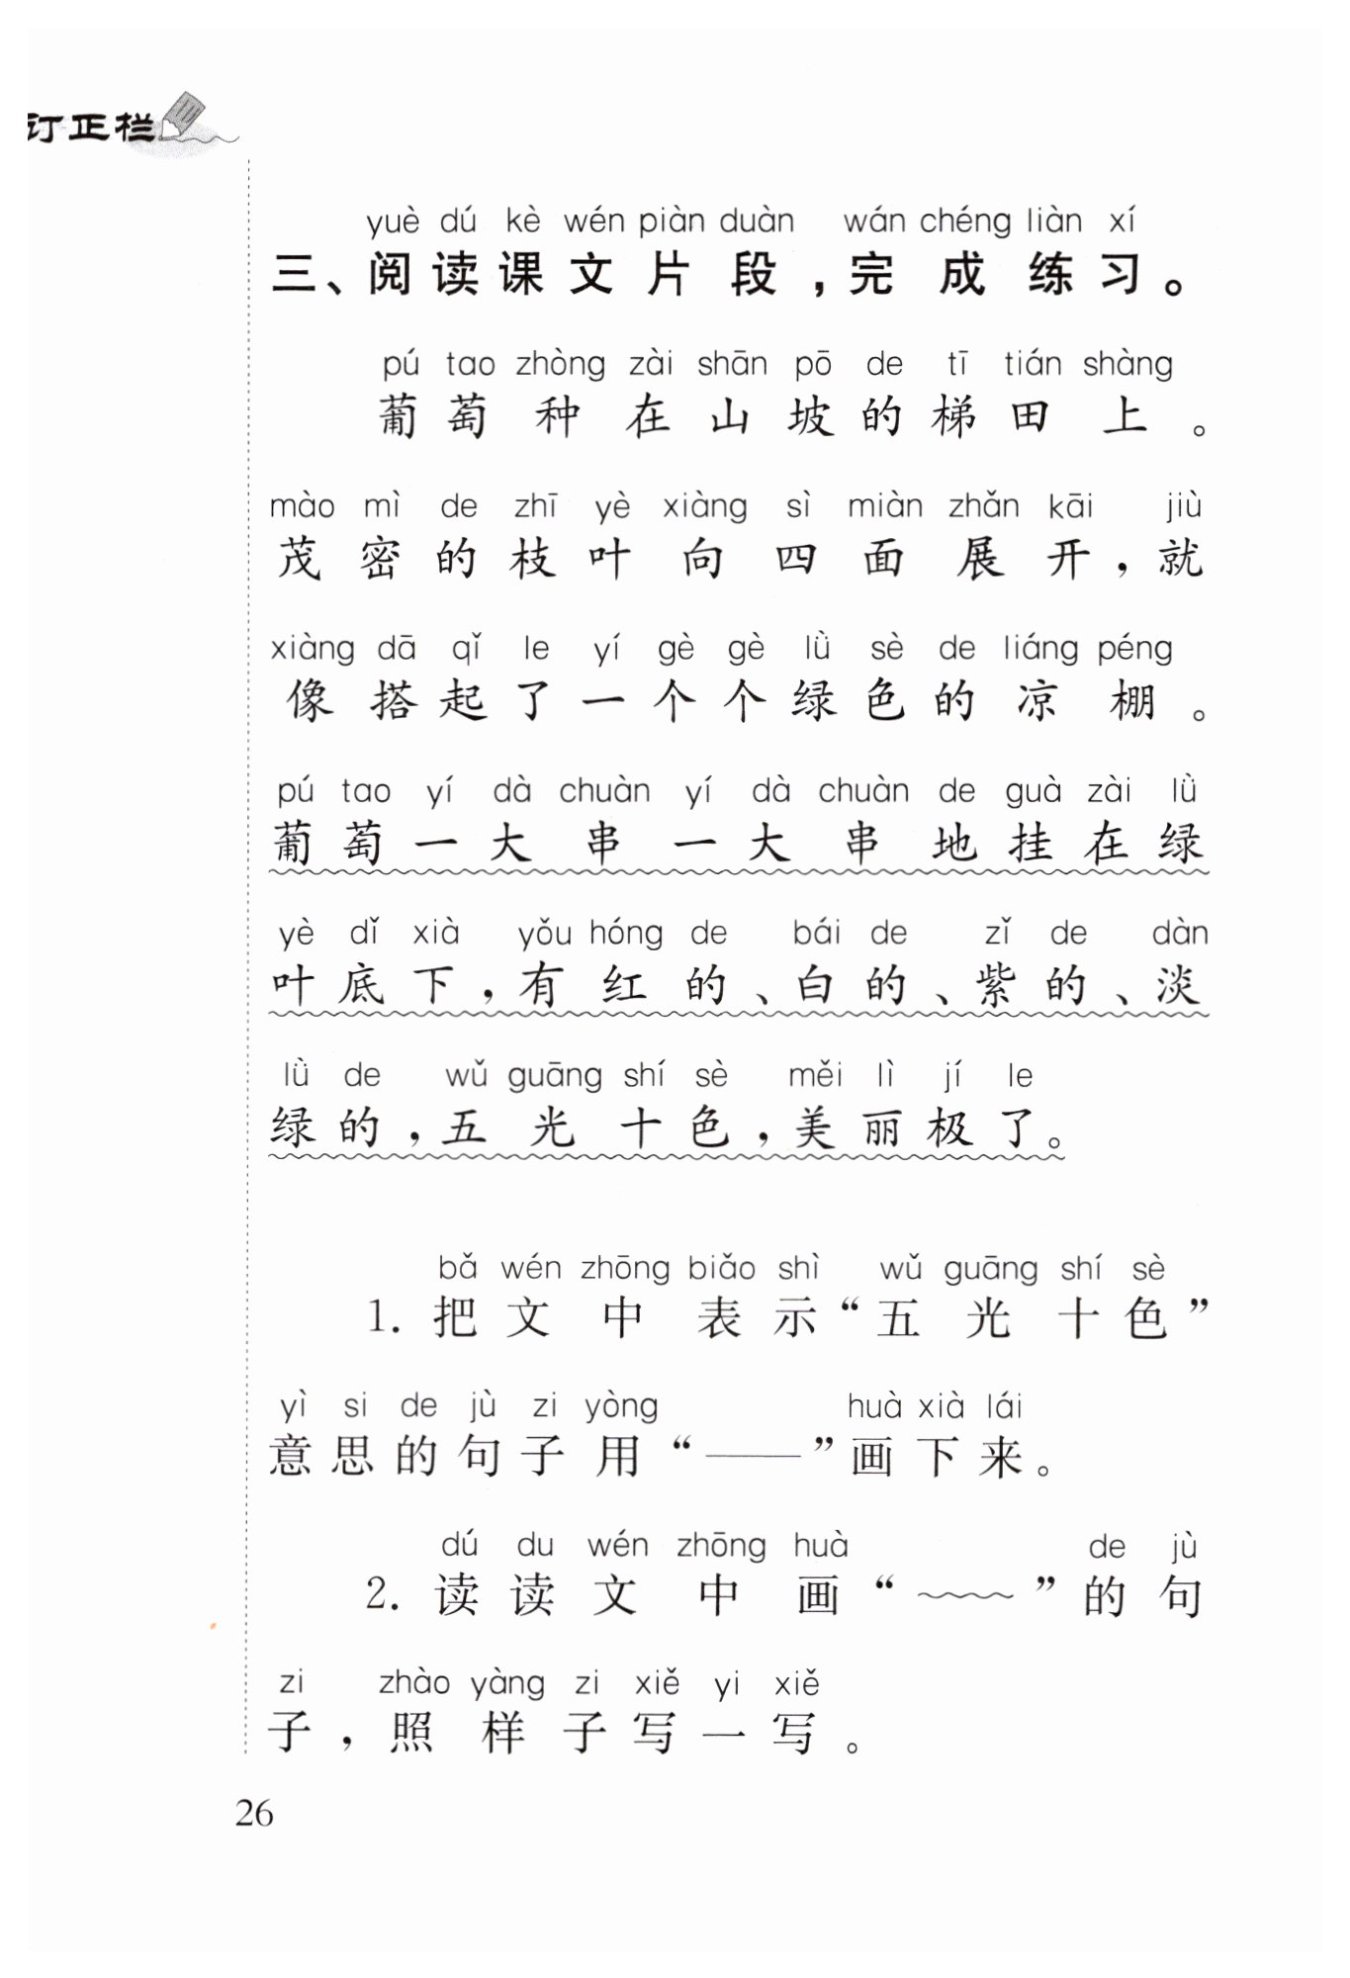 订正栏
yuè dú kè wén piàn duàn wán chéng liàn xí
三、阅读课文片段，完成练习。
pú tao zhòng zài shān pō de tī tián shàng
葡萄种在山坡的梯田上。
mào mì de zhī yè xiàng sì miàn zhǎn kāi jiù
茂密的枝叶向四面展开，就
xiàng dā qǐ le yí gè gè lǜ sè de liáng péng
像搭起了一个个绿色的凉棚。
pú tao yí dà chuàn yí dà chuàn de guà zài lǜ
葡萄一大串一大串地挂在绿
yè dǐ xià yǒu hóng de bái de zǐ de dàn
叶底下，有红的、白的、紫的、淡
lǜ de wǔ guāng shí sè měi lì jí le
绿的，五光十色，美丽极了。
bǎ wén zhōng biǎo shì wǔ guāng shí sè
1. 把文中表示“五光十色”
yì si de jù zi yòng huà xià lái
意思的句子用“——”画下来。
dú du wén zhōng huà de jù
2. 读读文中画“﹏﹏”的句
zi zhào yàng zi xiě yi xiě
子，照样子写一写。
26